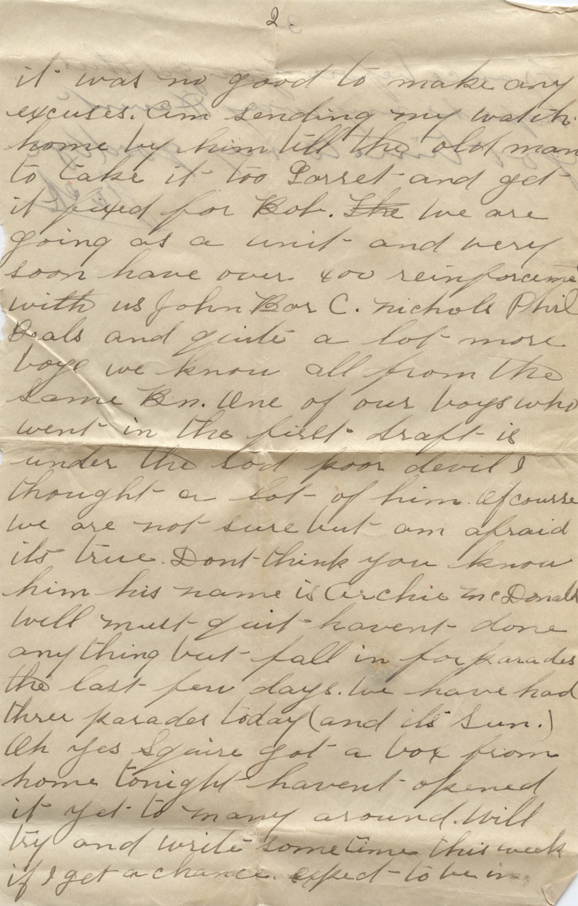 2.
it was no good to make any
excuses. Am sending my watch
home by him till the old man
to take it too Parret and get
it fixed for Bob. The we are
going as a unit and very
soon have over 400 reinforceme
with us John Bar C. Nichols Phil
Beals and quite a lot more
boys we know all from the
same Bn. One of our boys who
went in the first draft is
under the sod poor devil I
thought a lot of him. Of course
we are not sure but am afraid
its true. Dont think you know
him his name is Archie McDonald
Well must quit havent done
anything but fall in for parades
the last few days. We have had
three parades today (and its Sun.)
Oh yes Squire got a box from
home tonight havent opened
it yet to many around. Will
try and write sometime this week
if I get a chance. expect to be in